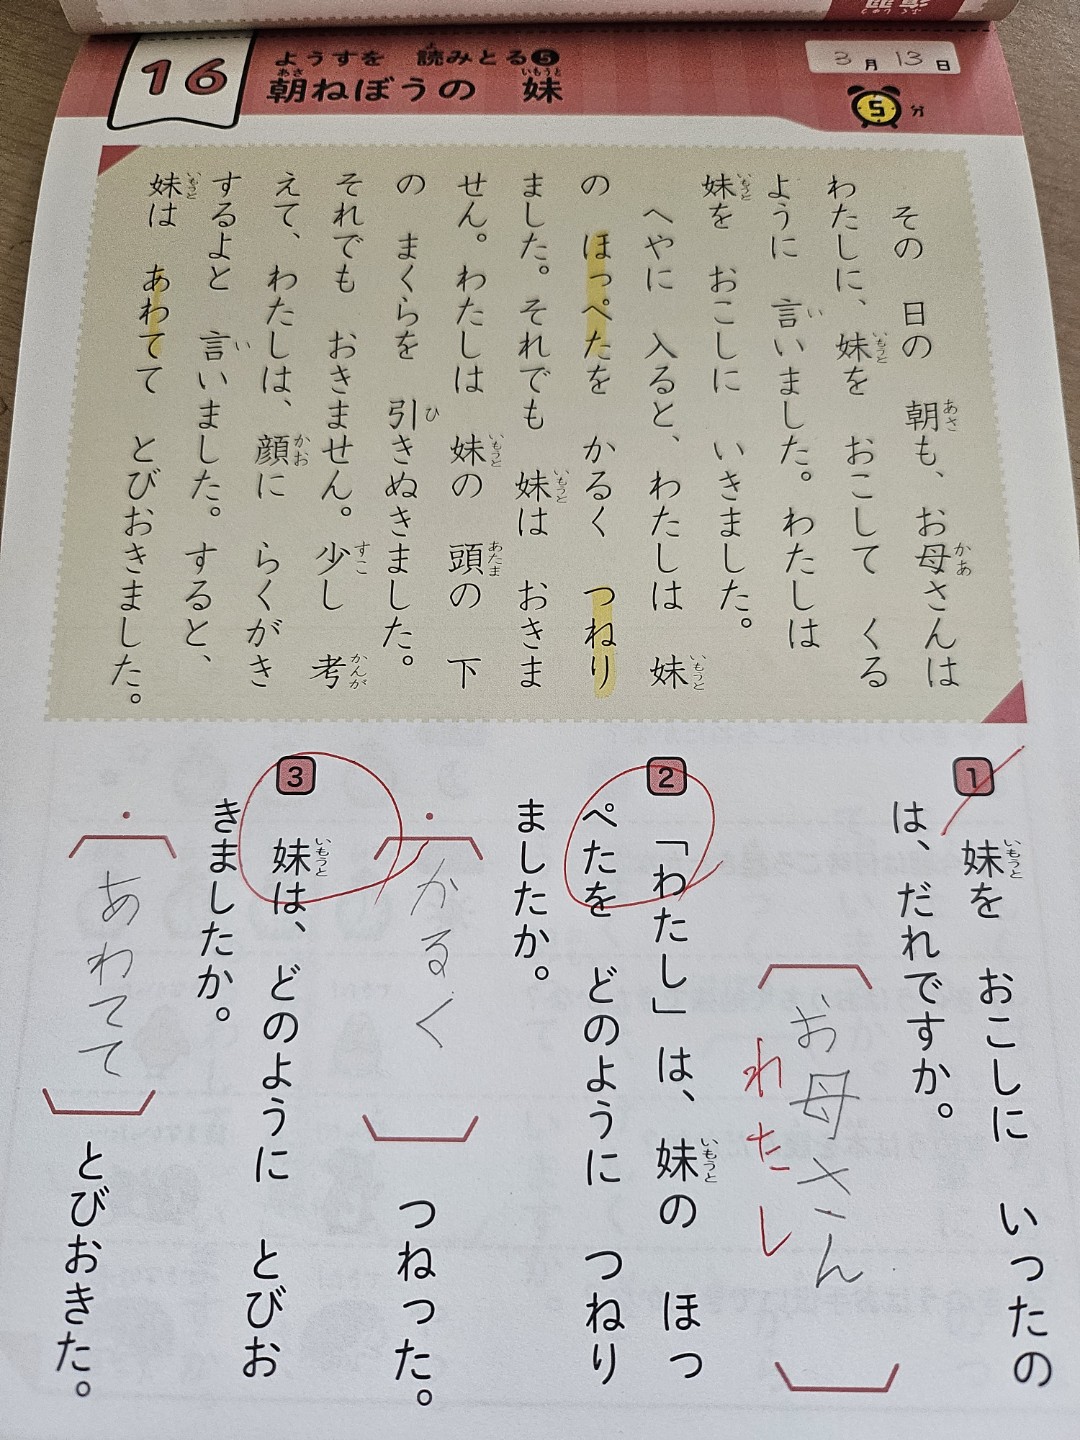 16
ようすを 読みとる5
朝ねぼうの 妹
3月13日
5分
その 日の 朝も、お母さんは
わたしに、妹を おこして くる
ように 言いました。わたしは
妹を おこしに いきました。
へやに 入ると、わたしは 妹
の ほっぺたを かるく つねり
ました。それでも 妹は おきま
せん。わたしは 妹の 頭の 下
の まくらを 引きぬきました。
それでも おきません。少し 考
えて、わたしは、顔に らくがき
するよと 言いました。すると、
妹は あわてて とびおきました。
1 妹を おこしに いったの
は、だれですか。
お母さん
わたし
2 「わたし」は、妹の ほっ
ぺたを どのように つねり
ましたか。
・かるく つねった。
3 妹は、どのように とびお
きましたか。
・あわてて とびおきた。